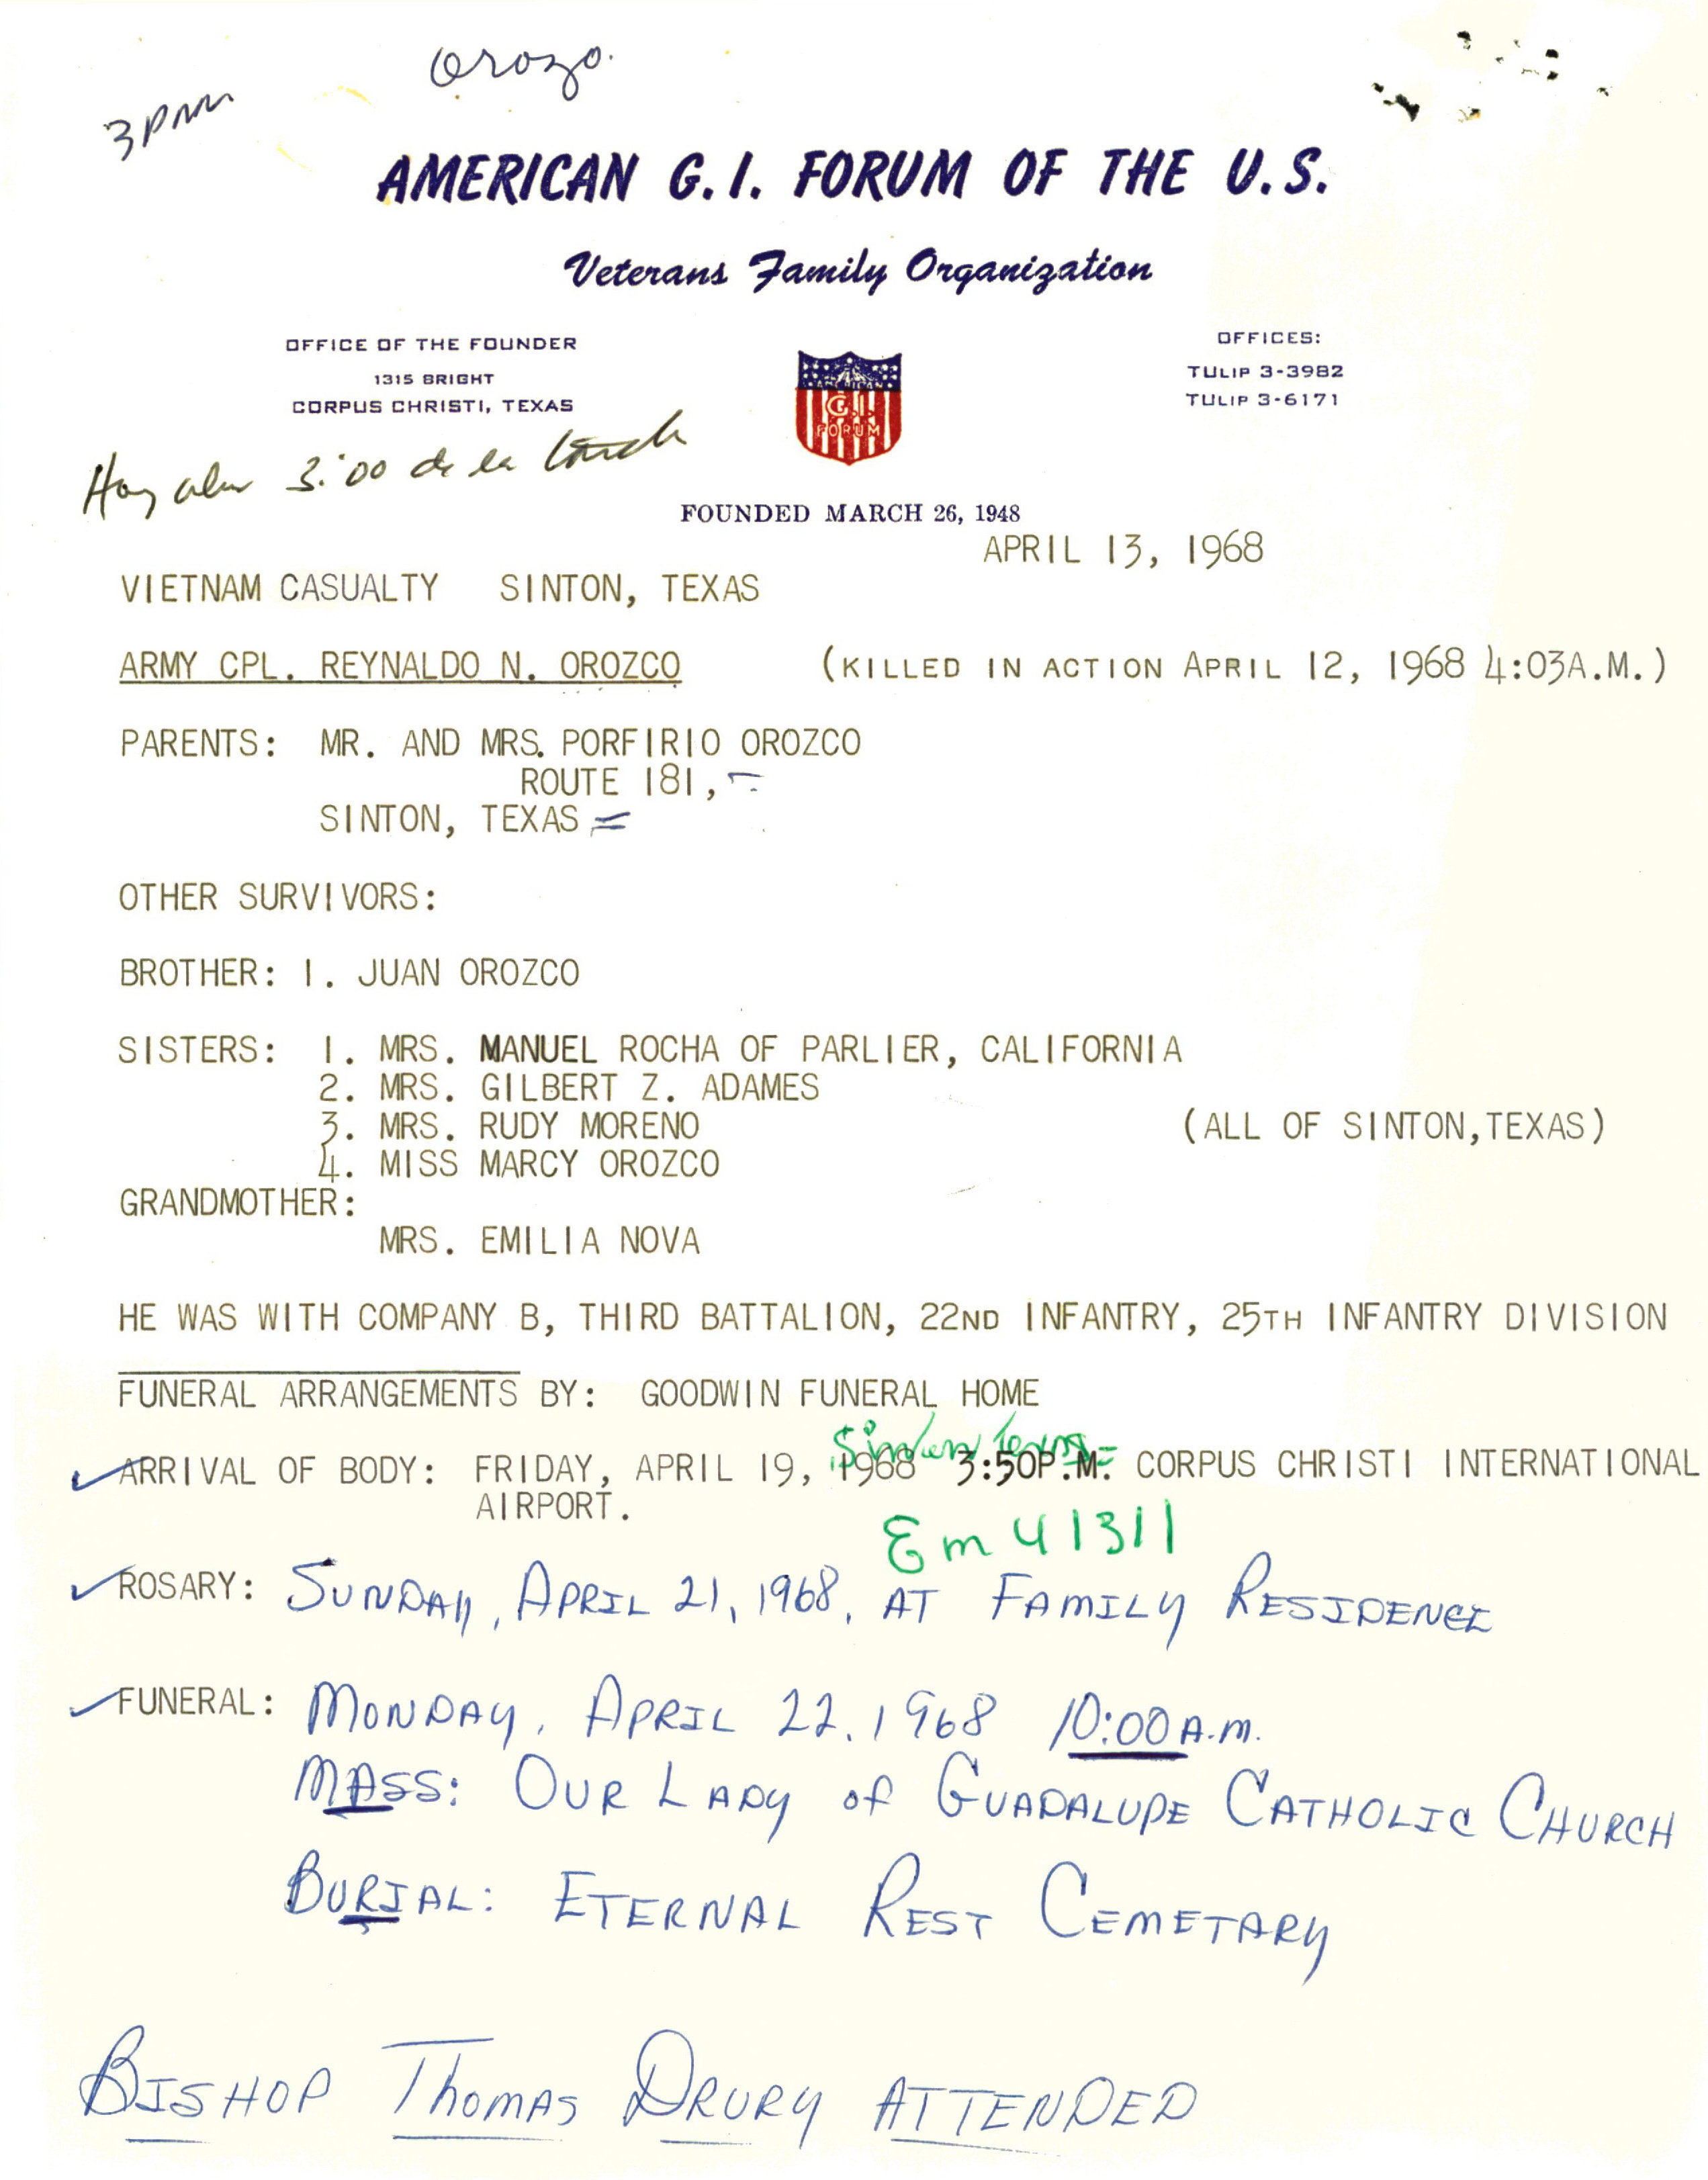 Orozo.
3 pm
AMERICAN G. I. FORUM OF THE U. S.
Veterans Family Organization
OFFICE OF THE FOUNDER
1315 BRIGHT
CORPUS CHRISTI, TEXAS
OFFICES:
TULIP 3-3982
TULIP 3-6171
AMERICAN
G.I.
FORUM
3:00 de la
FOUNDED MARCH 26, 1948
APRIL 13, 1968
VIETNAM CASUALTY SINTON, TEXAS
ARMY CPL. REYNALDO N. OROZCO (KILLED IN ACTION APRIL 12, 1968 4:03A.M.)
PARENTS: MR. AND MRS. PORFIRIO OROZCO
ROUTE 181,
SINTON, TEXAS
OTHER SURVIVORS:
BROTHER: 1. JUAN OROZCO
SISTERS: 1. MRS. MANUEL ROCHA OF PARLIER, CALIFORNIA
2. MRS. GILBERT Z. ADAMES
3. MRS. RUDY MORENO (ALL OF SINTON,TEXAS)
4. MISS MARCY OROZCO
GRANDMOTHER:
MRS. EMILIA NOVA
HE WAS WITH COMPANY B, THIRD BATTALION, 22ND INFANTRY, 25TH INFANTRY DIVISION
FUNERAL ARRANGEMENTS BY: GOODWIN FUNERAL HOME
Sinton Texas
ARRIVAL OF BODY: FRIDAY, APRIL 19, 1968 3:50P.M. CORPUS CHRISTI INTERNATIONAL
AIRPORT.
Em 41311
ROSARY: SUNDAY, APRIL 21, 1968, AT FAMILY RESIDENCE
FUNERAL: MONDAY, APRIL 22, 1968 10:00 A.M.
MASS: OUR LADY of GUADALUPE CATHOLIC CHURCH
BURIAL: ETERNAL REST CEMETARY
BISHOP THOMAS DRURY ATTENDED